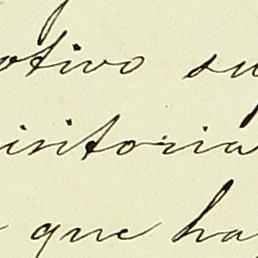 otivo su
isitoria
que ha